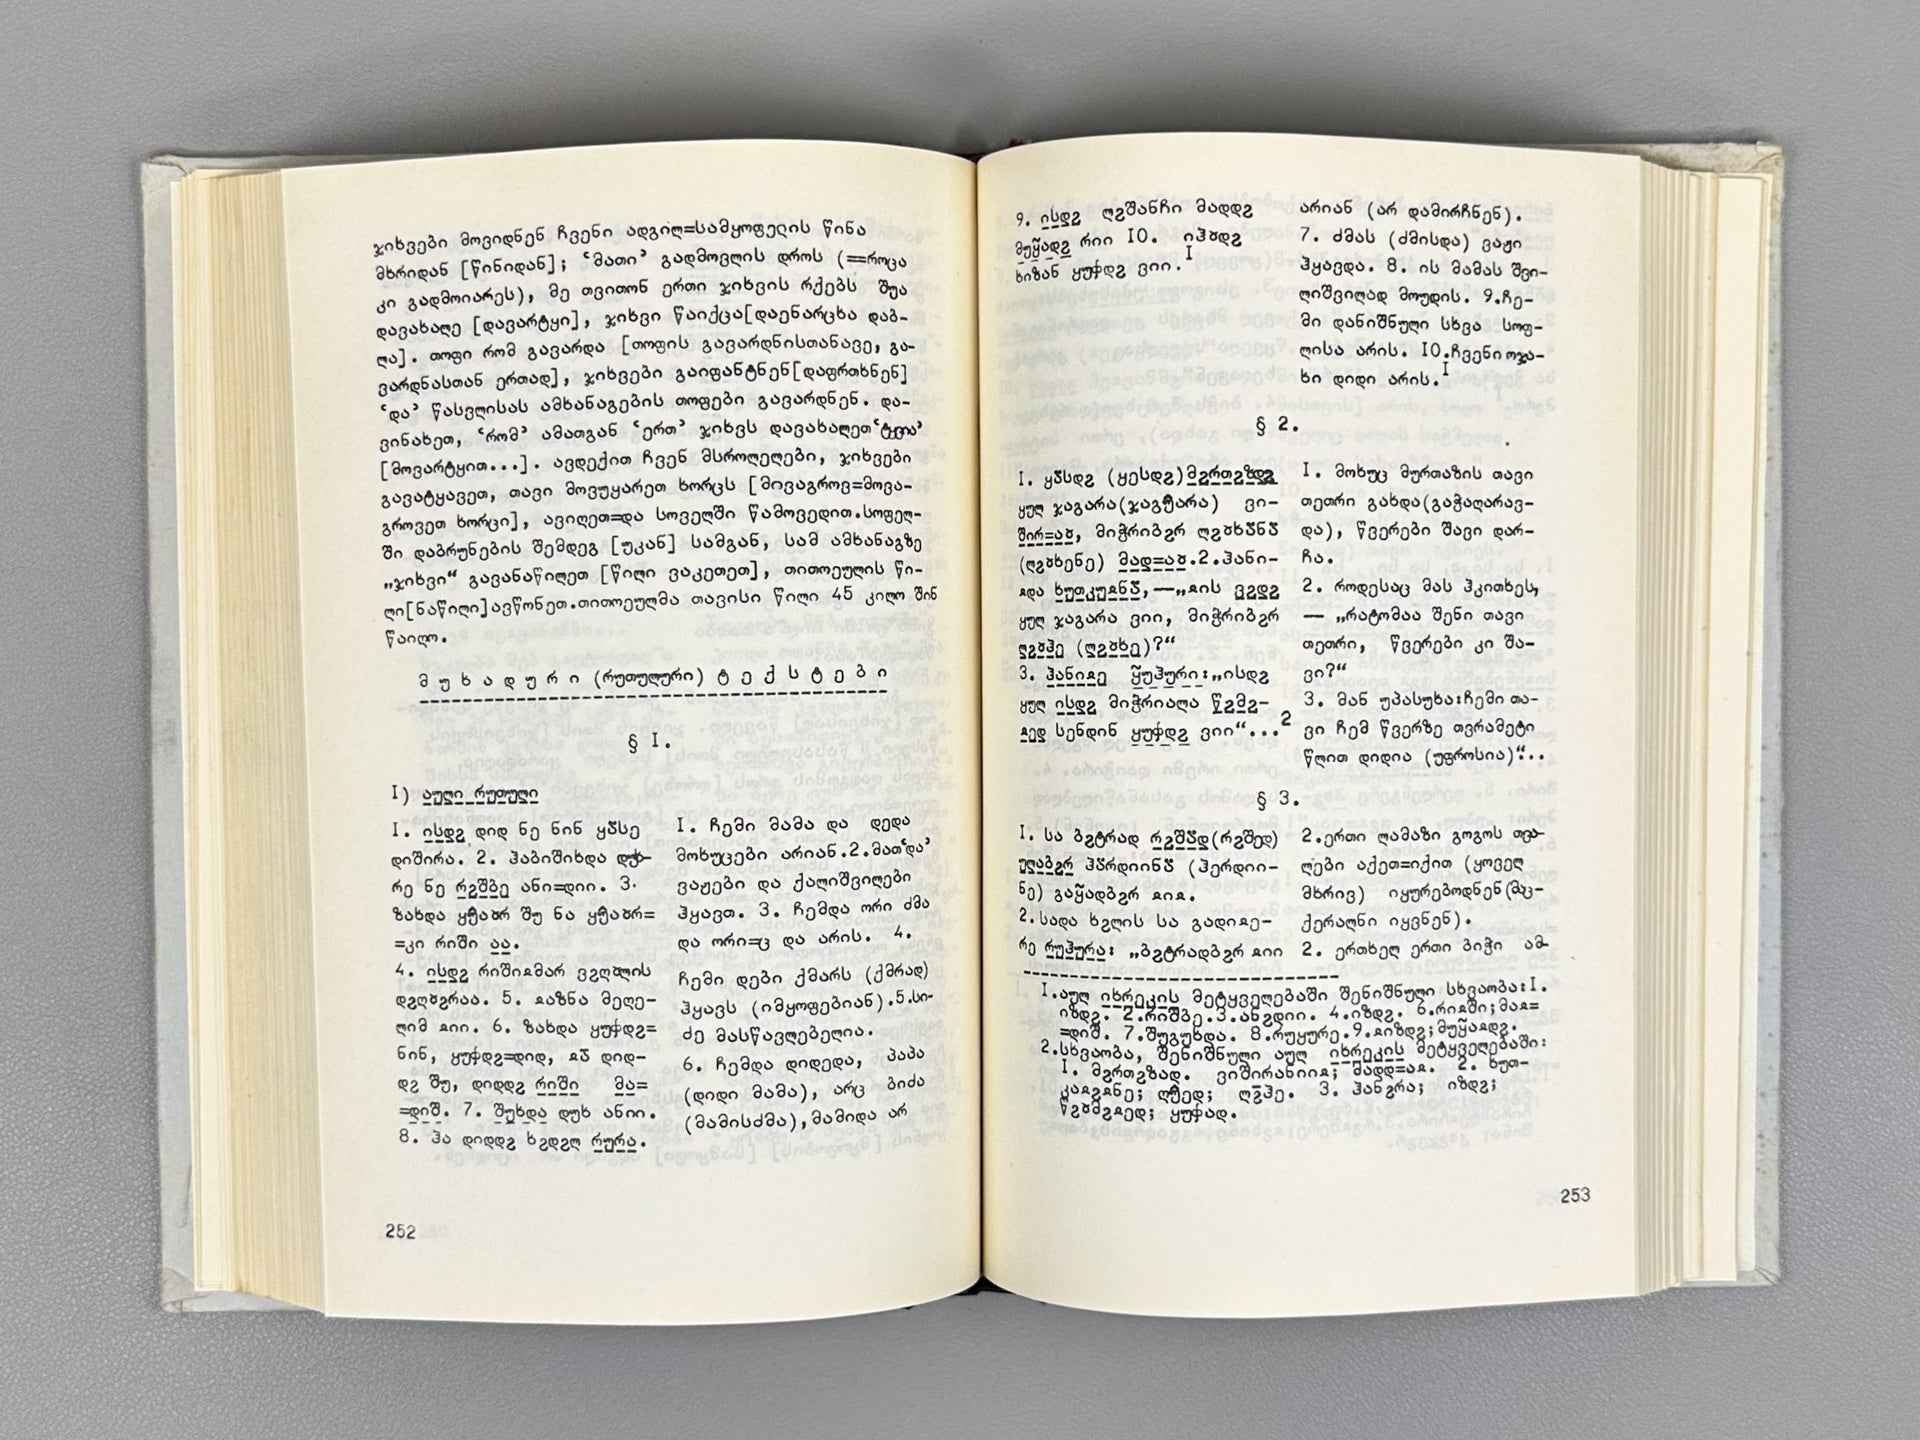 ჯიხვები მოვიდნენ ჩვენი ადგილ=სამყოფელის წინა
მხრიდან [წინიდან]; ‘მათი’ გადმოვლის დროს (==როცა
კი გადმოიარეს), მე თვითონ ერთი ჯიხვის რქებს შუა
დავახალე [დავარტყი], ჯიხვი წაიქცა[დაენარცხა დაბ-
ლა]. თოფი რომ გავარდა [თოფის გავარდნისთანავე, გა-
ვარდნასთან ერთად], ჯიხვები გაიფანტნენ[დაფრთხნენ]
‘და’ წასვლისას ამხანაგების თოფები გავარდნენ. და-
ვინახეთ, ‘რომ’ ამათგან ‘ერთ’ ჯიხვს დავახალეთ‘ტყვია’
[მოვარტყით...]. ავდექით ჩვენ მსროლელები, ჯიხვები
გავატყავეთ, თავი მოვუყარეთ ხორცს [მივაგროვ=მოვა-
გროვეთ ხორცი], ავიღეთ=და სოველში წამოვედით.სოფელ-
ში დაბრუნების შემდეგ [უკან] სამგან, სამ ამხანაგზე
„ჯიხვი“ გავანაწილეთ [წილი ვაკეთეთ], თითოეულის წი-
ლი[ნაწილი]ავწონეთ.თითოეულმა თავისი წილი 45 კილო შინ
წაიღო.
მ უ ხ ა დ უ რ ი (რუთულური) ტ ე ქ ს ტ ე ბ ი
§ I.
I) აული რუთული
I. ისდჷ დიდ ნე ნინ ყა̈სე
დიშირა. 2. ჰაბიშიხდა
რე ნე რჷშბე ანი=დიი. 3.
ზახდა შუ ნა
=კი რიში აა.
4. ისდჷ
5. მელე-
ლიმ 6. ზახდა
დიდ-
დჷ შუ, დიდდჷ რიში მა=
=დიშ. 7. შუხდა დუხ ანიი.
8. ჰა დიდდჷ ხჷდჷლ რურა.
I. ჩემი მამა და დედა
მოხუცები არიან.2.მათ‘და’
ვაჟები და ქალიშვილები
ჰყავთ. 3. ჩემდა ორი ძმა
და ორი=ც და არის. 4.
ჩემი დები ქმარს (ქმრად)
ჰყავს (იმყოფებიან).5.სი-
ძე მასწავლებელია.
6. ჩემდა დიდედა, პაპა
(დიდი მამა), არც ბიძა
(მამისძმა),მამიდა არ
252
9. ისდჷ ღჷშანჩი მადდჷ
რიი 10.
ხიზან ვიი.
არიან (არ დამირჩნენ).
7. ძმას (ძმისდა) ვაჟი
ჰყავდა. 8. ის მამას შვი-
ლიშვილად მოუდის. 9.ჩე-
მი დანიშნული სხვა სოფ-
ლისა არის. 10.ჩვენი ოჯა-
ხი დიდი არის.I
§ 2.
I. ყა̈სდჷ (ყესდჷ)მჷრთჷზდჷ
ყულ ჯაგარა ვი-
მად=აჲ.2.ჰანი-
ყულ ჯაგარა ვიი,
3. „ისდჷ
ყულ ისდჷ
სენდინ ვიი“...2
I. მოხუც მურთაზის თავი
თეთრი გახდა(გაჭაღარავ-
და), წვერები შავი დარ-
ჩა.
2. როდესაც მას ჰკითხეს,
— „რატომაა შენი თავი
თეთრი, წვერები კი შა-
ვი?“
3. მან უპასუხა:ჩემი თა-
ვი ჩემ წვერზე თვრამეტი
წლით დიდია (უფროსია)“...
§ 3.
I. სა ბჷტრად რჷშა̈დ(რჷშედ)
ულაბჷრ ჰა̈რდიინა̈ (ჰერდიი-
ნე)
2.სადა ხჷლის სა
რე რუჰურა: „ბჷტრადბჷრ
2.ერთი ლამაზი გოგოს თვა-
ლები აქეთ=იქით (ყოველ
მხრივ) იყურებოდნენ(მაც-
ქერალნი იყვნენ).
2. ერთხელ ერთი ბიჭი ამ-
I.აულ იხრეკის მეტყველებაში შენიშნული სხვაობა:I.
იზდჷ. 2.რიშბე.3.ანჷდიი. 4.იზდჷ.
=დიშ. 7.შუგუხდა. 8.რუყურე.
2.სხვაობა, შენიშნული აულ იხრეკის მეტყველებაში:
I. მჷრთჷზად. 2. ხუთ-
ღჷჰე. 3. ჰანჷრა; იზდჷ;
253